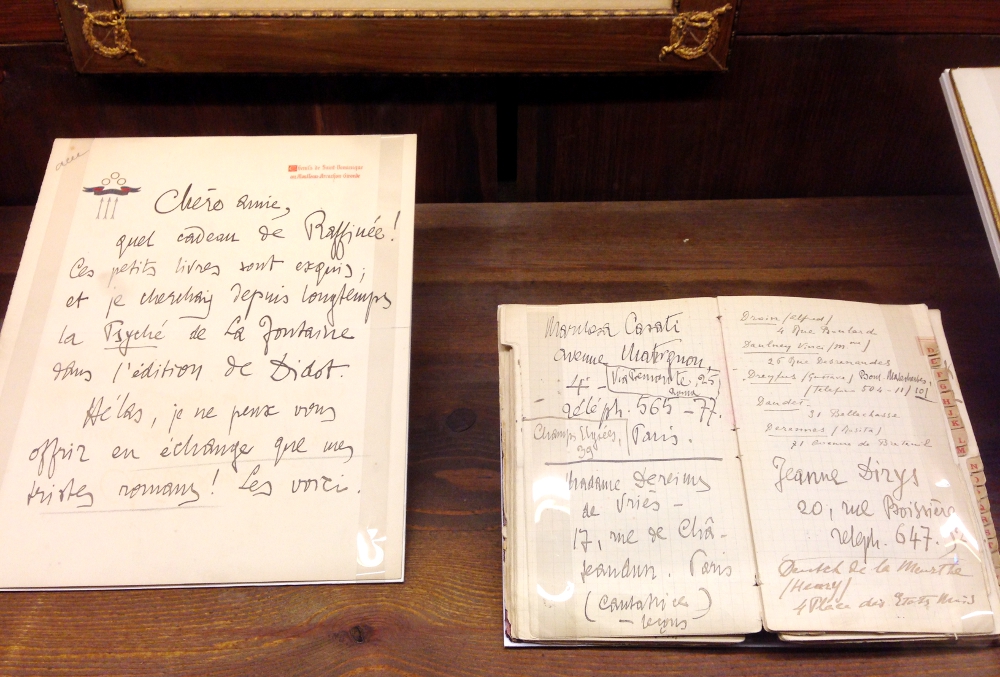 Chère amie,
quel cadeau de Raffinée!
Ces petits livres sont exquis;
et je cherchais depuis longtemps
la Psyché de La Fontaine
dans l'édition de Didot.
Hélas, je ne peux vous
offrir en échange que mes
tristes romans! Les voici.
Marchesa Casati
avenue Matignon,
4 - Via Piemonte, 25
Roma
téléph. 565-77.
Champs Elysées, Paris.
99
Madame
de Vriès -
17, rue de Châ-
teaudun. Paris
(cantatrice
- leçons
/Alfred/
4 Rue Boulard
26 Rue des Renaudes
Dreyfus /Gustave/ Boul. Malesherbes,
/Telefino 504-11/ 101
Daudet -
31 Bellechasse
21 Avenue de Breteuil
Jeanne Dirys
20, rue Boissière
téléph. 647.
Deutsch de la Meurthe
/Henry/
4 Place des Etats Unis
D
E
F
G
H
J K
L
M
N